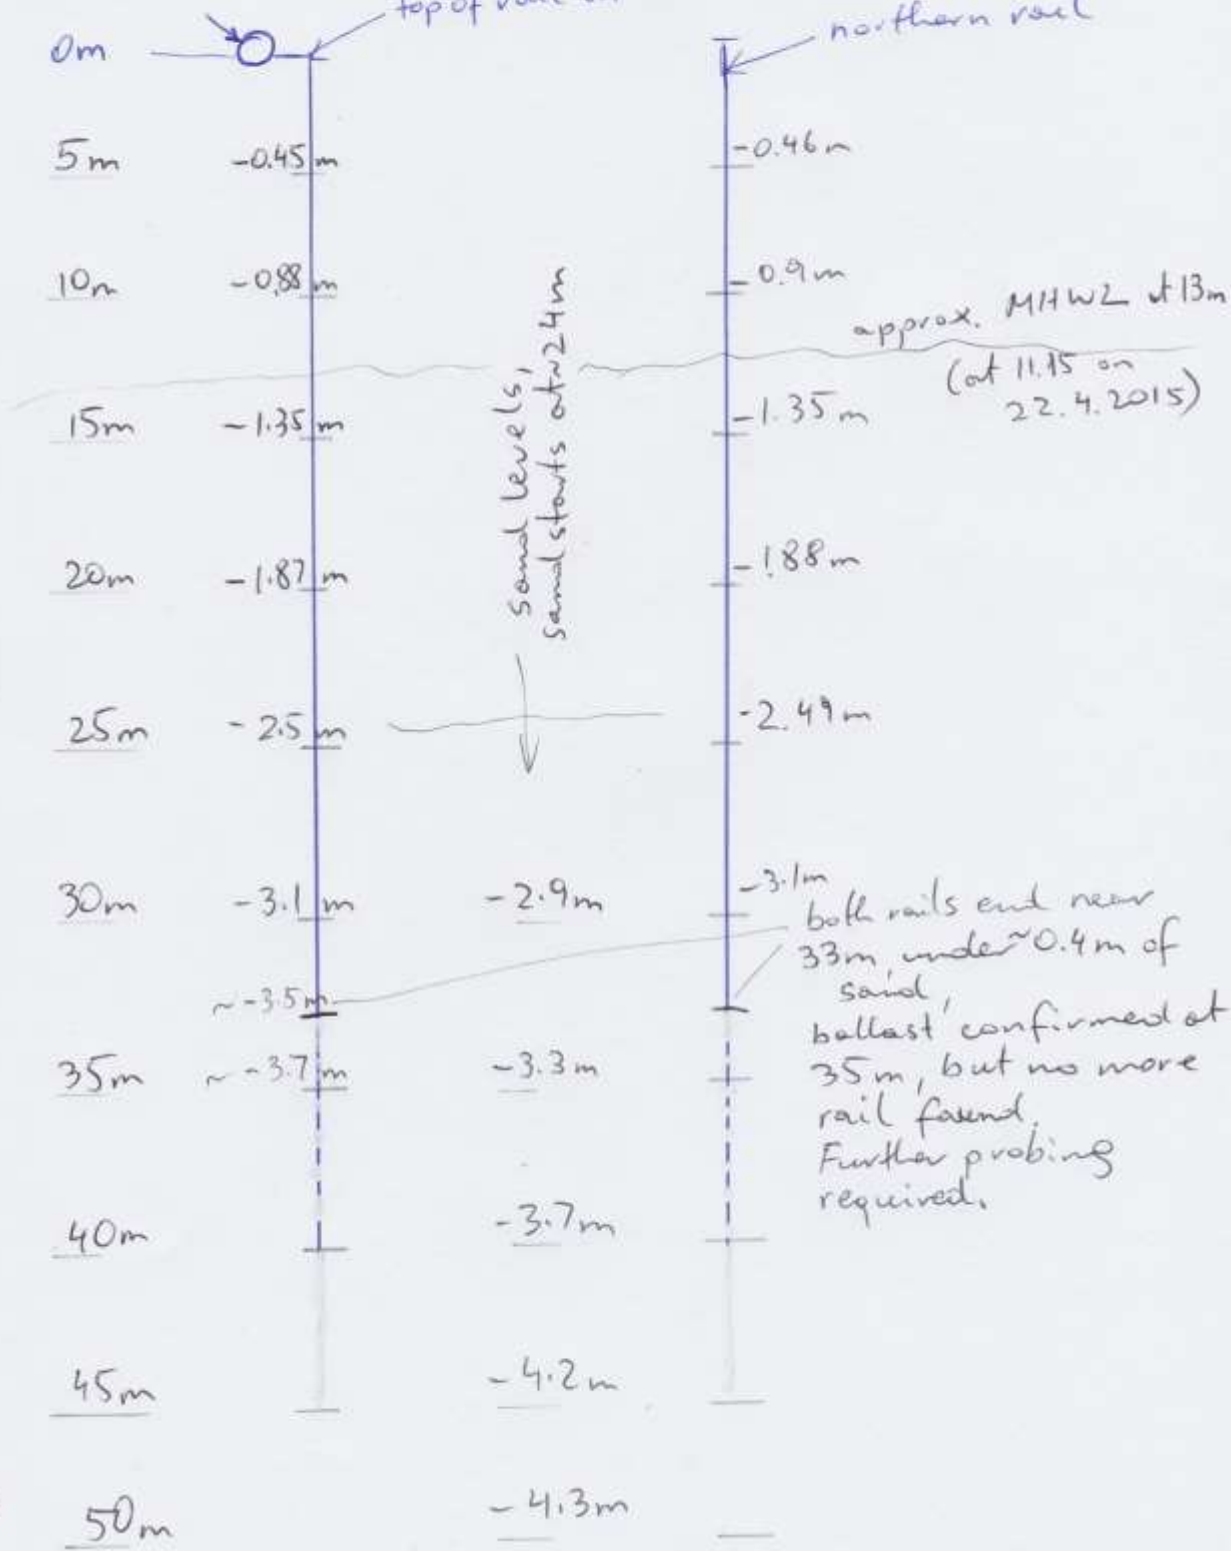 top of
northern rail
0m
5m -0.45 m -0.46m
10m -0.88 m -0.9m
approx. MHWL at 13m
(at 11.15 on
22.4.2015)
15m -1.35 m -1.35m
sand levels,
sand starts at ~24m
20m -1.87 m -1.88m
25m -2.5 m -2.49m
30m -3.1 m -2.9m -3.1m
both rails end near
33m, under ~0.4m of
sand,
ballast confirmed at
35m, but no more
rail found.
Further probing
required.
~ -3.5m
35m ~ -3.7 m -3.3m
40m -3.7m
45m -4.2m
50m -4.3m